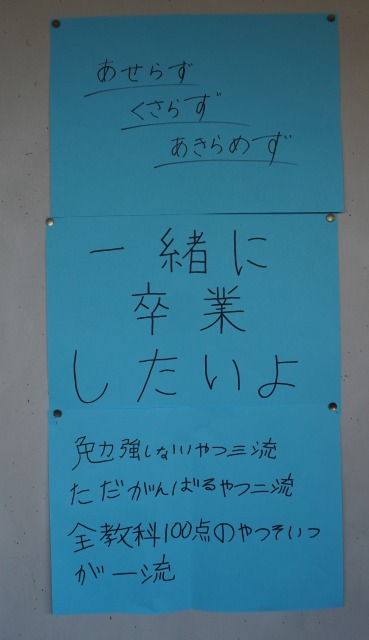 あせらず
くさらず
あきらめず
一緒に
卒業
したいよ
勉強しないやつ三流
ただがんばるやつ二流
全教科100点のやつそいつ
が一流